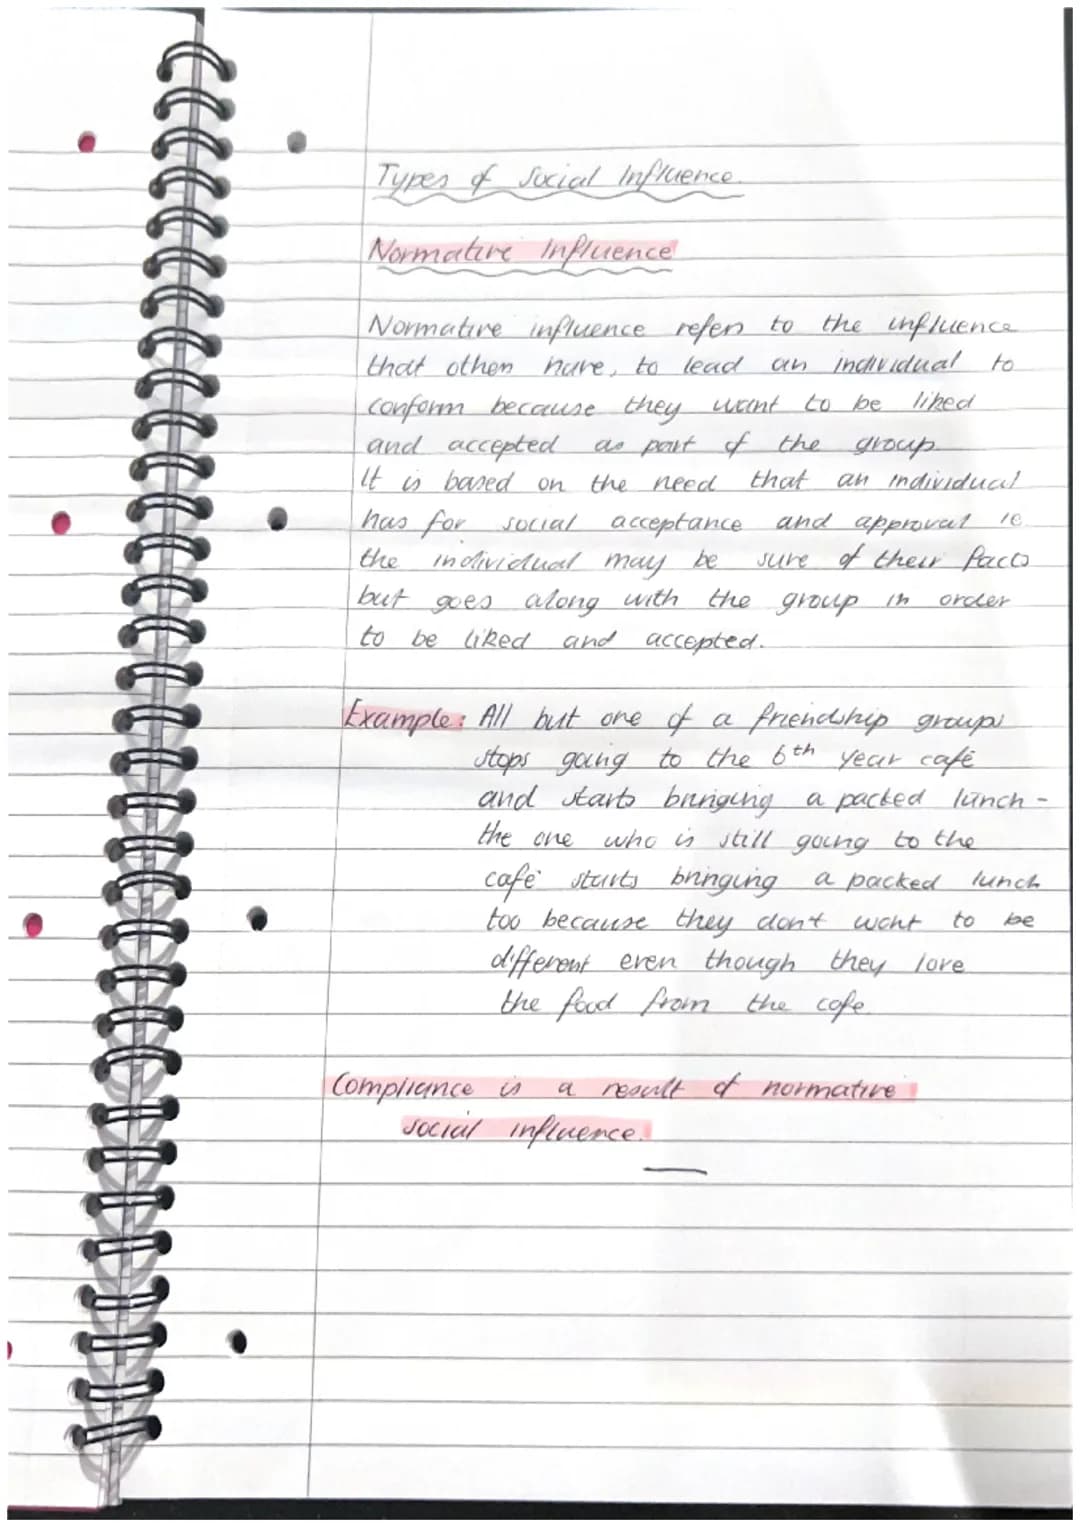 Types of Social Influence.
Normative Influence
Normative influence refers to the influence
that others have, to lead an individual to
conform because they want to be liked
and accepted as part of the group.
It is based on the need that an individual
has for social acceptance and approval ie.
the individual may be sure of their facts
but goes along with the group in order
to be liked and accepted.
Example: All but one of a friendship group
stops going to the 6th year café
and starts bringing a packed lunch -
the one who is still going to the
café starts bringing a packed lunch
too because they don't want to be
different even though they love
the food from the cafe.
Compliance is a result of normative
social influence.